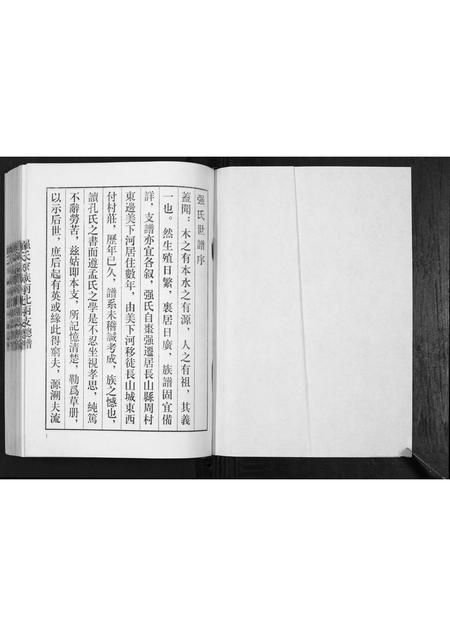 强氏世譜序
蓋聞：木之有本水之有源，人之有祖，其義
一也。然生殖日繁，裏居日廣，族譜固宜備
詳，支譜亦宜各叙，强氏自棗强遷居長山縣周村
東邊美下河居住數年，由美下河移徒長山城東西
付村莊，歷年已久，譜系未稽誠考成，族之憾也，
讀孔氏之書而遵孟氏之學是不忍坐視孝思，純篤
不辭勞苦，兹姑即本支，所記憶清楚，勒爲草册，
以示后世，庶后起有英或緣此得窮夫，源溯夫流
1